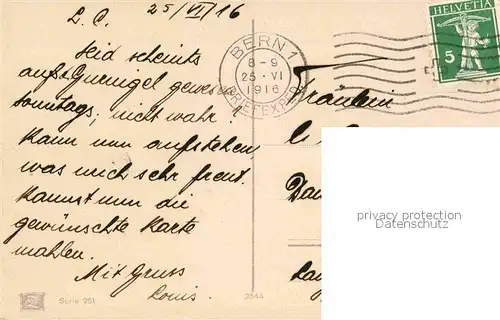 L. C. 25/VI/16
Seid scheints
auf Gurnigel gewesen
Sonntags, nicht wahr?
Kann nun aufstehen,
was mich sehr freut.
Kannst nun die
gewünschte Karte
mahlen.
Mit Gruss
Louis.
BERN 1
8-9
25. VI
1916
BRIEFEXPED.
HELVETIA
5
Fräulein
privacy protection
Datenschutz
Serie 251